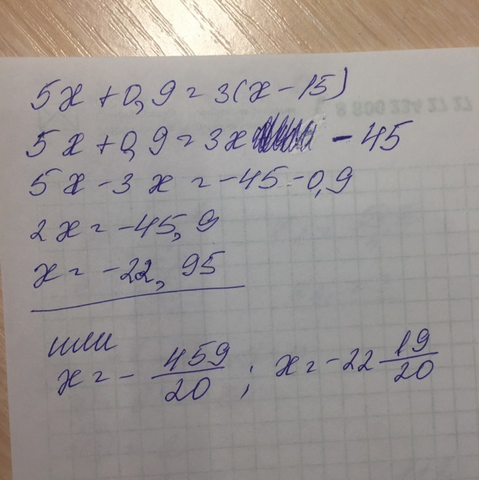 5x+0,9=3(x-15)
5x+0,9=3x -45
5x-3x=-45-0,9
2x=-45,9
x=-22,95
или
x=-459/20; x=-22 19/20